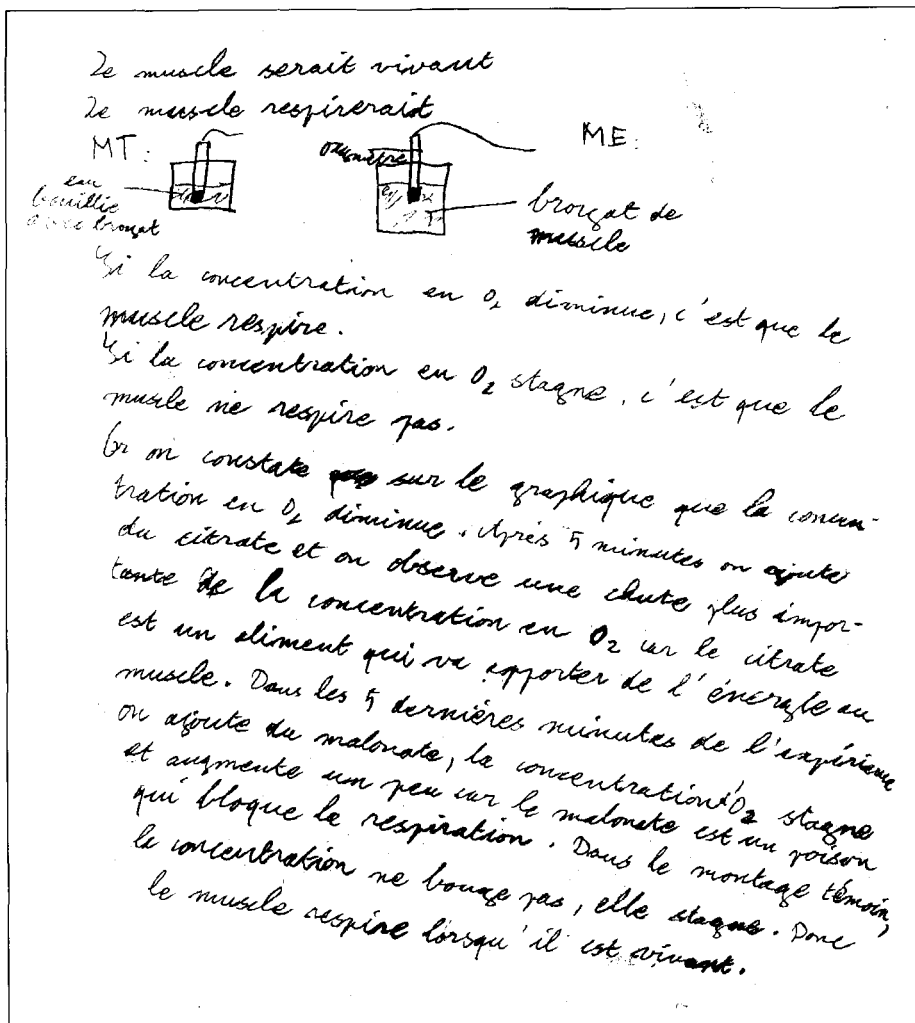 Le muscle serait vivant
Le muscle respirerait
MT:
oxymètre
ME:
eau
bouillie
avec broyat
broyat de
muscle
Si la concentration en O₂ diminue, c'est que le
muscle respire.
Si la concentration en O₂ stagne, c'est que le
muscle ne respire pas.
Or on constate sur le graphique que la concen-
tration en O₂ diminue. Après 5 minutes on ajoute
du citrate et on observe une chute plus impor-
tante de la concentration en O₂ car le citrate
est un aliment qui va apporter de l'énergie au
muscle. Dans les 5 dernières minutes de l'expérience
on ajoute du malonate, la concentration d'O₂ stagne
et augmente un peu car le malonate est un poison
qui bloque la respiration. Dans le montage témoin,
la concentration ne bouge pas, elle stagne. Donc
le muscle respire lorsqu'il est vivant.